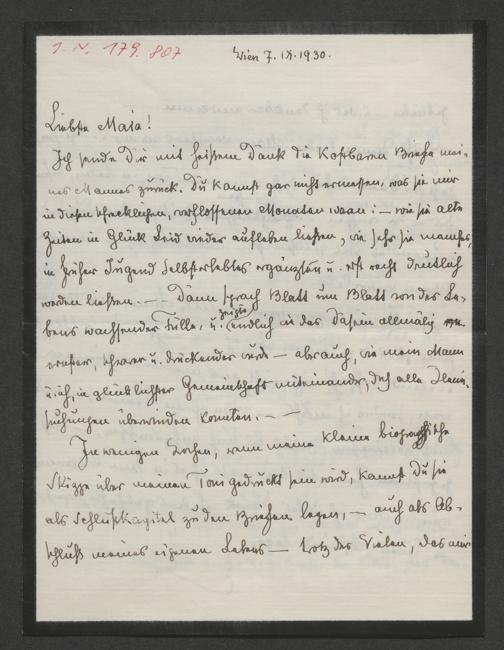 I. N. 179.807
Wien 7. IX. 1930.
Liebste Maja!
Ich sende Dir mit heißem Dank die kostbaren Briefe mei-
nes Mannes zurück. Du kannst gar nicht ermessen, was sie mir
in diesen schrecklichen, verflossenen Monaten waren: – wie sie alte
Zeiten in Glück u. Leid wieder aufleben ließen, wie sehr sie manches,
in früher Jugend Selbsterlebtes ergänzten u. erst recht deutlich
werden ließen. – – Dann sprach Blatt um Blatt von des Le-
bens wachsender Fülle, u. zeigte endlich wie das Dasein allmälig
ernster, schwerer u. drückender wurde – aber auch, wie mein Mann
u. ich, in glücklichster Gemeinschaft miteinander, doch alle Heim-
suchungen überwinden konnten. – –
In wenigen Wochen, wenn meine kleine biographische
Skizze über meinen Toni gedruckt sein wird, kannst Du sie
als Schlußkapitel zu den Briefen legen, – auch als Ab-
schluß meines eigenen Lebens – trotz des Vielen, das mir